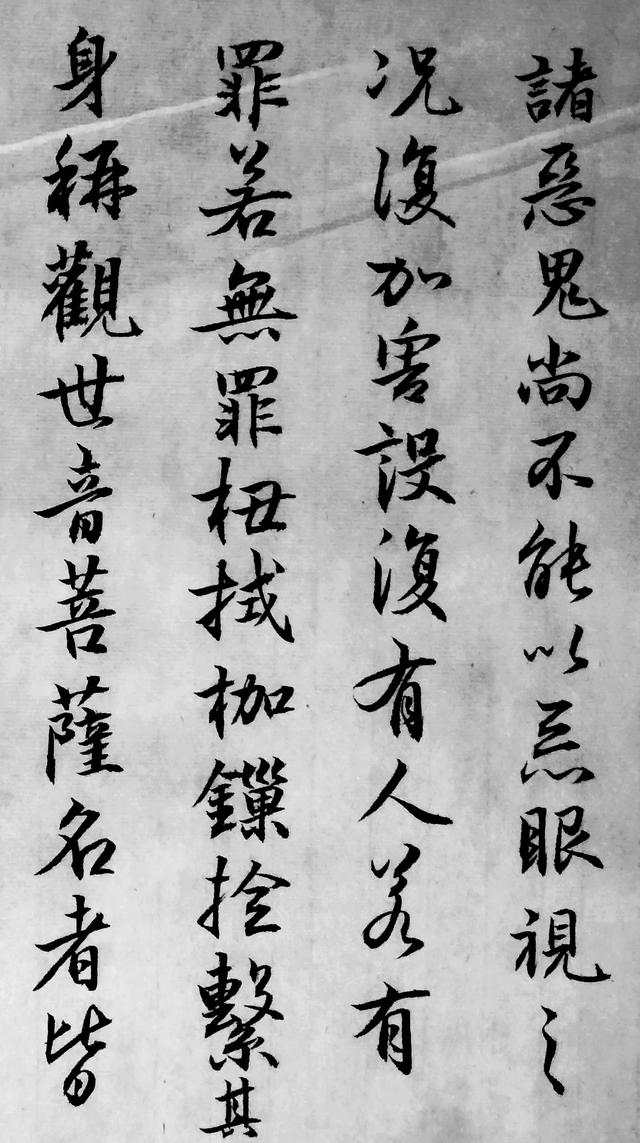 諸惡鬼尚不能以惡眼視之
況復加害設復有人若有
罪若無罪杻械枷鏁捡繫其
身稱觀世音菩薩名者皆